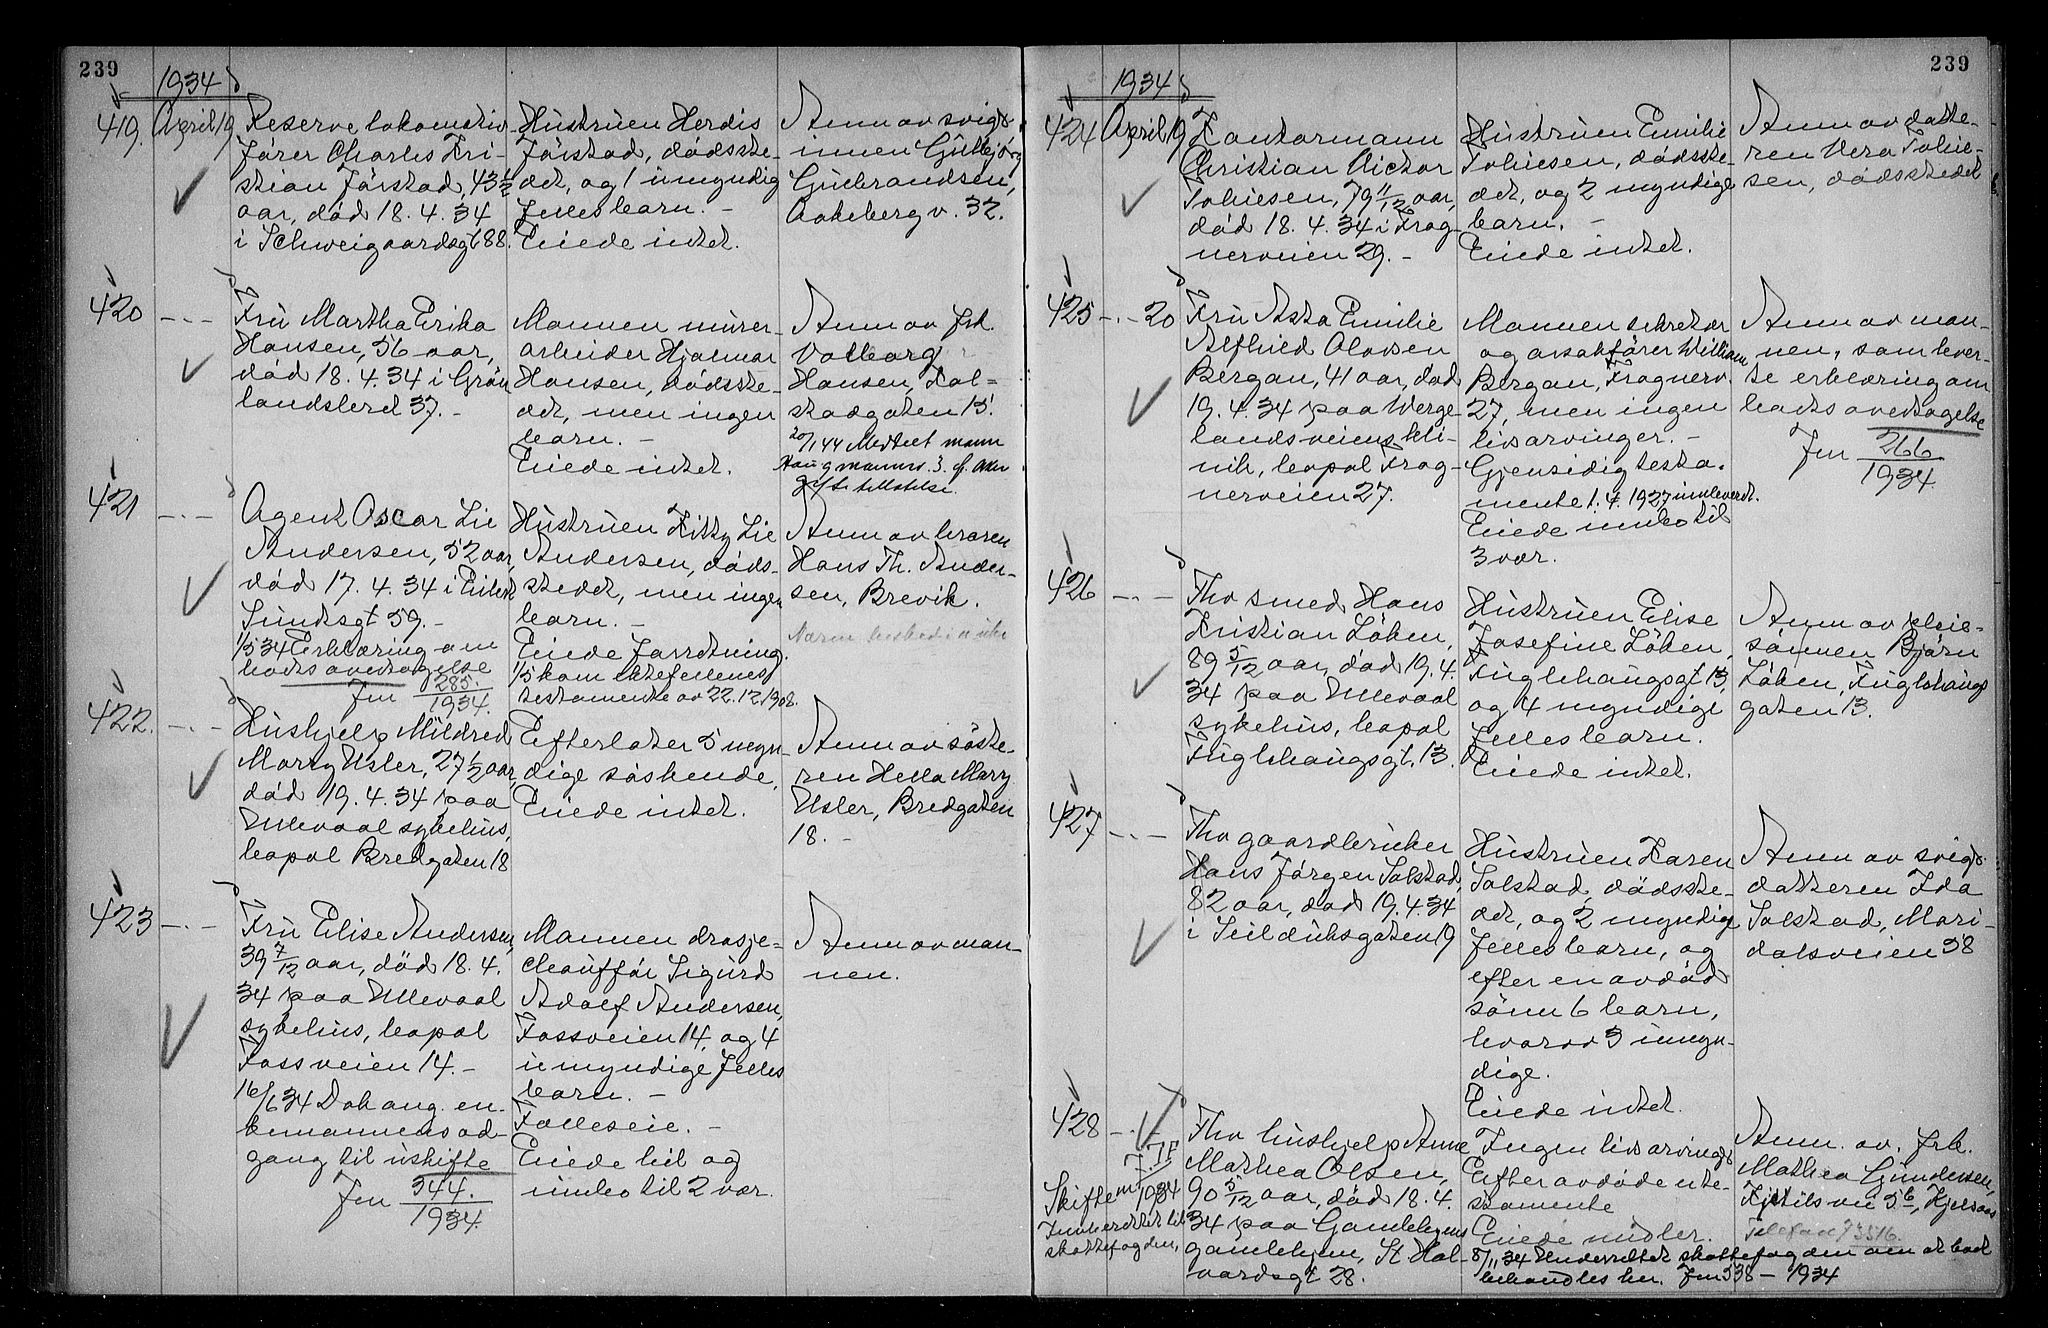 239
1934
419. April 19
Reserve lokomotiv-
fører Charles Kri-
stian Jörstad, 43 1/2
aar, död 18.4.34
i Schweigaardsgt 88.
Hustruen Herdis
Jörstad, dödsste-
det, og 1 umyndig
felles barn. -
Eiede intet.
Anm av svigs
innen Gudbjörg
Gulbrandsen,
Aakebergv. 32.
420 -.-
Fru Martha Erika
Hansen, 56 aar,
död 18.4.34 i Grön
landsleret 37. -
Mannen murer-
arbeider Hjalmar
Hansen, dödsste-
det, men ingen
barn. -
Eiede intet.
Anm av frk.
Valborg
Hansen, Kal=
stadgaten 15.
20/1 44 Meddelt mann
421 -.-
Agent Oscar Lie
Andersen, 52 aar,
död 17.4.34 i Eilert
Sundtsgt 59. -
1/5 34 Erklæring om
bads overtagelse
Jnr 285.
1934.
Hustruen Kitty Lie
Andersen, döds-
stedet, men ingen
barn. -
Eiede forretning.
1/5 kom ektefellenes
testamente av 22.12.1908.
Anm av broren
Hans Th. Ander-
sen, Brevik.
422. -.-
Hushjelp Mildred
Marry Usler, 27 1/2 aar,
död 19.4.34 paa
Ullevaal sykehus,
bopel Bredgaten 18
Efterlater 5 myn-
dige söskende.
Eiede intet.
Anm av söste-
ren Hella Mary
Usler, Bredgaten
18. -
423 -.-
Fru Elise Andersen,
39 7/12 aar, död 18.4.
34 paa Ullevaal
sykehus, bopel
Fossveien 14. -
16/6 34 Dok ang. en-
kemannens ad-
gang til uskifte
Jnr 344.
1934.
Mannen drosje=
chauffør Sigurd
Adolf Andersen,
Fossveien 14, og 4
umyndige felles
barn. -
Felleseie. -
Eiede bil og
innbo til 2 vær.
Anm av man-
nen.
239
1934
424 April 19
Kontormann
Christian Victor
Tobiesen, 79 11/12 aar,
död 18.4.34 i Frog-
nerveien 29. -
Hustruen Emilie
Tobiesen, dödsste-
det, og 2 myndige
barn. -
Eiede intet.
Anm av datte-
ren Vera Tobie-
sen, dödsstedet
425 -.- 20
Fru Asta Emilie
Alfhild Olavsen
Bergan, 41 aar, död
19.4.34 paa Werge-
landsveiens kli-
nik, bopel Frog-
nerveien 27.
Mannen sekretær
og avsakfører William
Bergan, Frognerv.
27, men ingen
livsarvinger. -
Gjensidig testa-
mente 1.4.1927 innlevert.
Eiede innbo til
3 vær.
Anm av man-
nen, som lever-
te erklæring om
boets overtagelse
Jnr 266
1934
426 -.-
Fhv smed Hans
Kristian Löken,
89 5/12 aar, död 19.4.
34 paa Ullevaal
sykehus, bopel
Fuglehaugsgt. 13.
Hustruen Elise
Josefine Löken,
Fuglehaugsgt 13,
og 4 myndige
felles barn.
Eiede intet.
Anm av pleie-
sönnen Björn
Löken, Fuglehaugs
gaten 13.
427 -.-
Fhv gaardbruker
Hans Jörgen Solstad,
82 aar, död 19.4.34
i Seilduksgaten 19
Hustruen Karen
Solstad, dödsste-
det, og 2 myndige
felles barn, og
efter en avdöd
sönn 6 barn,
hvorav 3 umyn-
dige.
Eiede intet.
Anm av svigs
datteren Ida
Solstad, Mari-
dalsveien 58
428 -.-
Skiftem 1934
Innberettet til
skattefogden,
Fhv hushjelp Anne
Mathea Olsen,
90 5/12 aar, död 18.4.
34 paa Gamlebyens
gamlehjem, St Hal-
vardsgt 28.
Ingen livsarvings
Efter avdøde ute-
stamente
Eiede midler.
8/11 34 Underrettet skattefogden om at boet
behandles her. Jnr 538 - 1934
Anm. av. frk.
Mathea Gundersen,
Kjetils vei 5b, Kjelsaas
Telefon 93516.